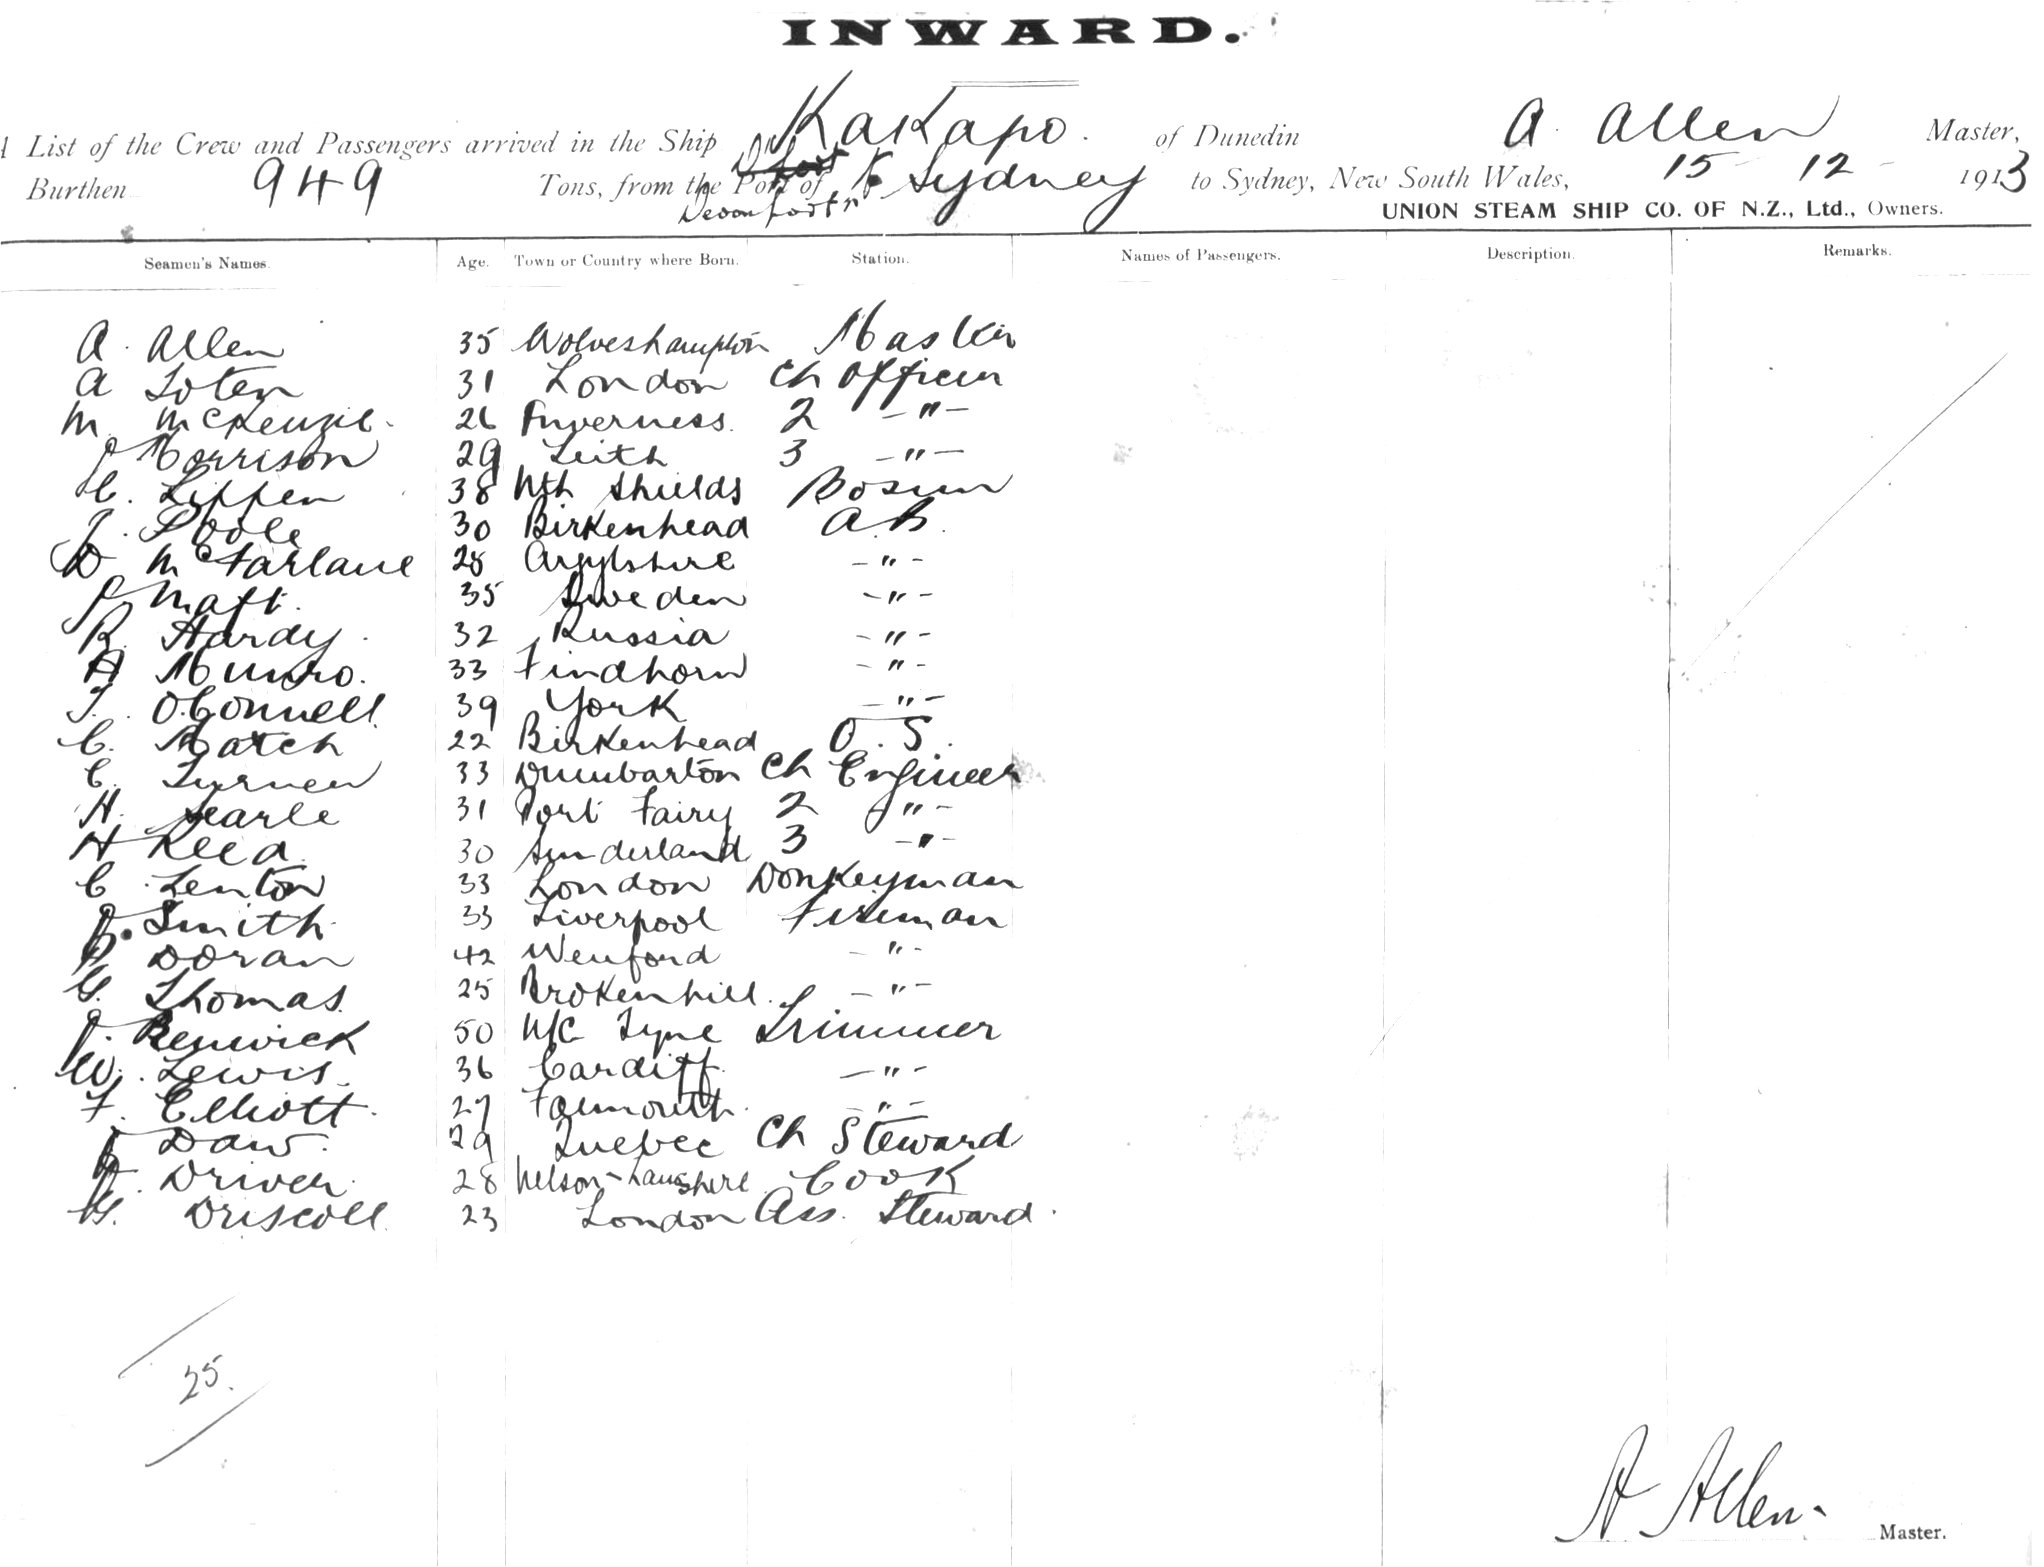 INWARD.
A List of the Crew and Passengers arrived in the Ship Kakapo. of Dunedin A. Allen Master,
Burthen 949 Tons, from the Port of Devonport to Sydney to Sydney, New South Wales, 15 12 - 1913
UNION STEAM SHIP CO. OF N.Z., Ltd., Owners.
Seamen's Names. Age. Town or Country where Born. Station. Names of Passengers. Description. Remarks.
A. Allen 35 Wolveshampton Master
A Loten 31 London Ch Officer
M. McKenzie. 26 Inverness. 2 - " -
J Morrison 29 Leith 3 - " -
C. Lippen 38 Nth Shields Bosun
J. Poole 30 Birkenhead A.B.
D McFarlane 28 Argylshire - " -
J Maft. 35 Sweden - " -
R. Hardy. 32 Russia - " -
A Munro. 33 Findhorn - " -
J. O'Connell. 39 York - " -
C. Match 22 Birkenhead O.S.
C. Turner 33 Dumbarton Ch Engineer
H. Searle 31 Port Fairy 2 " -
H Reed. 30 Sunderland 3 - " -
C Lenton 33 London Donkeyman
J. Smith. 33 Liverpool Fireman
Doran 42 Wenford - " -
G. Thomas. 25 Brokenhill. - " -
J. Renwick 50 N/C Tyne Trimmer
W. Lewis. 36 Cardiff. - " -
F. Elliott. 27 Falmouth. - " -
J Daw. 29 Quebec Ch Steward
Driver. 28 Nelson - Lancshire. Cook
G. Driscoll. 23 London Ass. Steward.
25.
A Allen. Master.